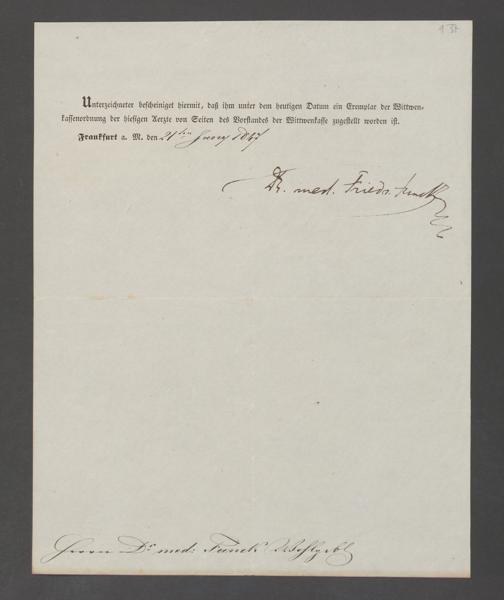 Unterzeichneter bescheiniget hiermit, daß ihm unter dem heutigen Datum ein Exemplar der Wittwen-
kassenordnung der hiesigen Aerzte von Seiten des Vorstandes der Wittwenkasse zugestellt worden ist.
Frankfurt a. M. den 21ten 1847
Dr. med. Friedr. Funck
Herrn Dr med: Funck Wohlgebl